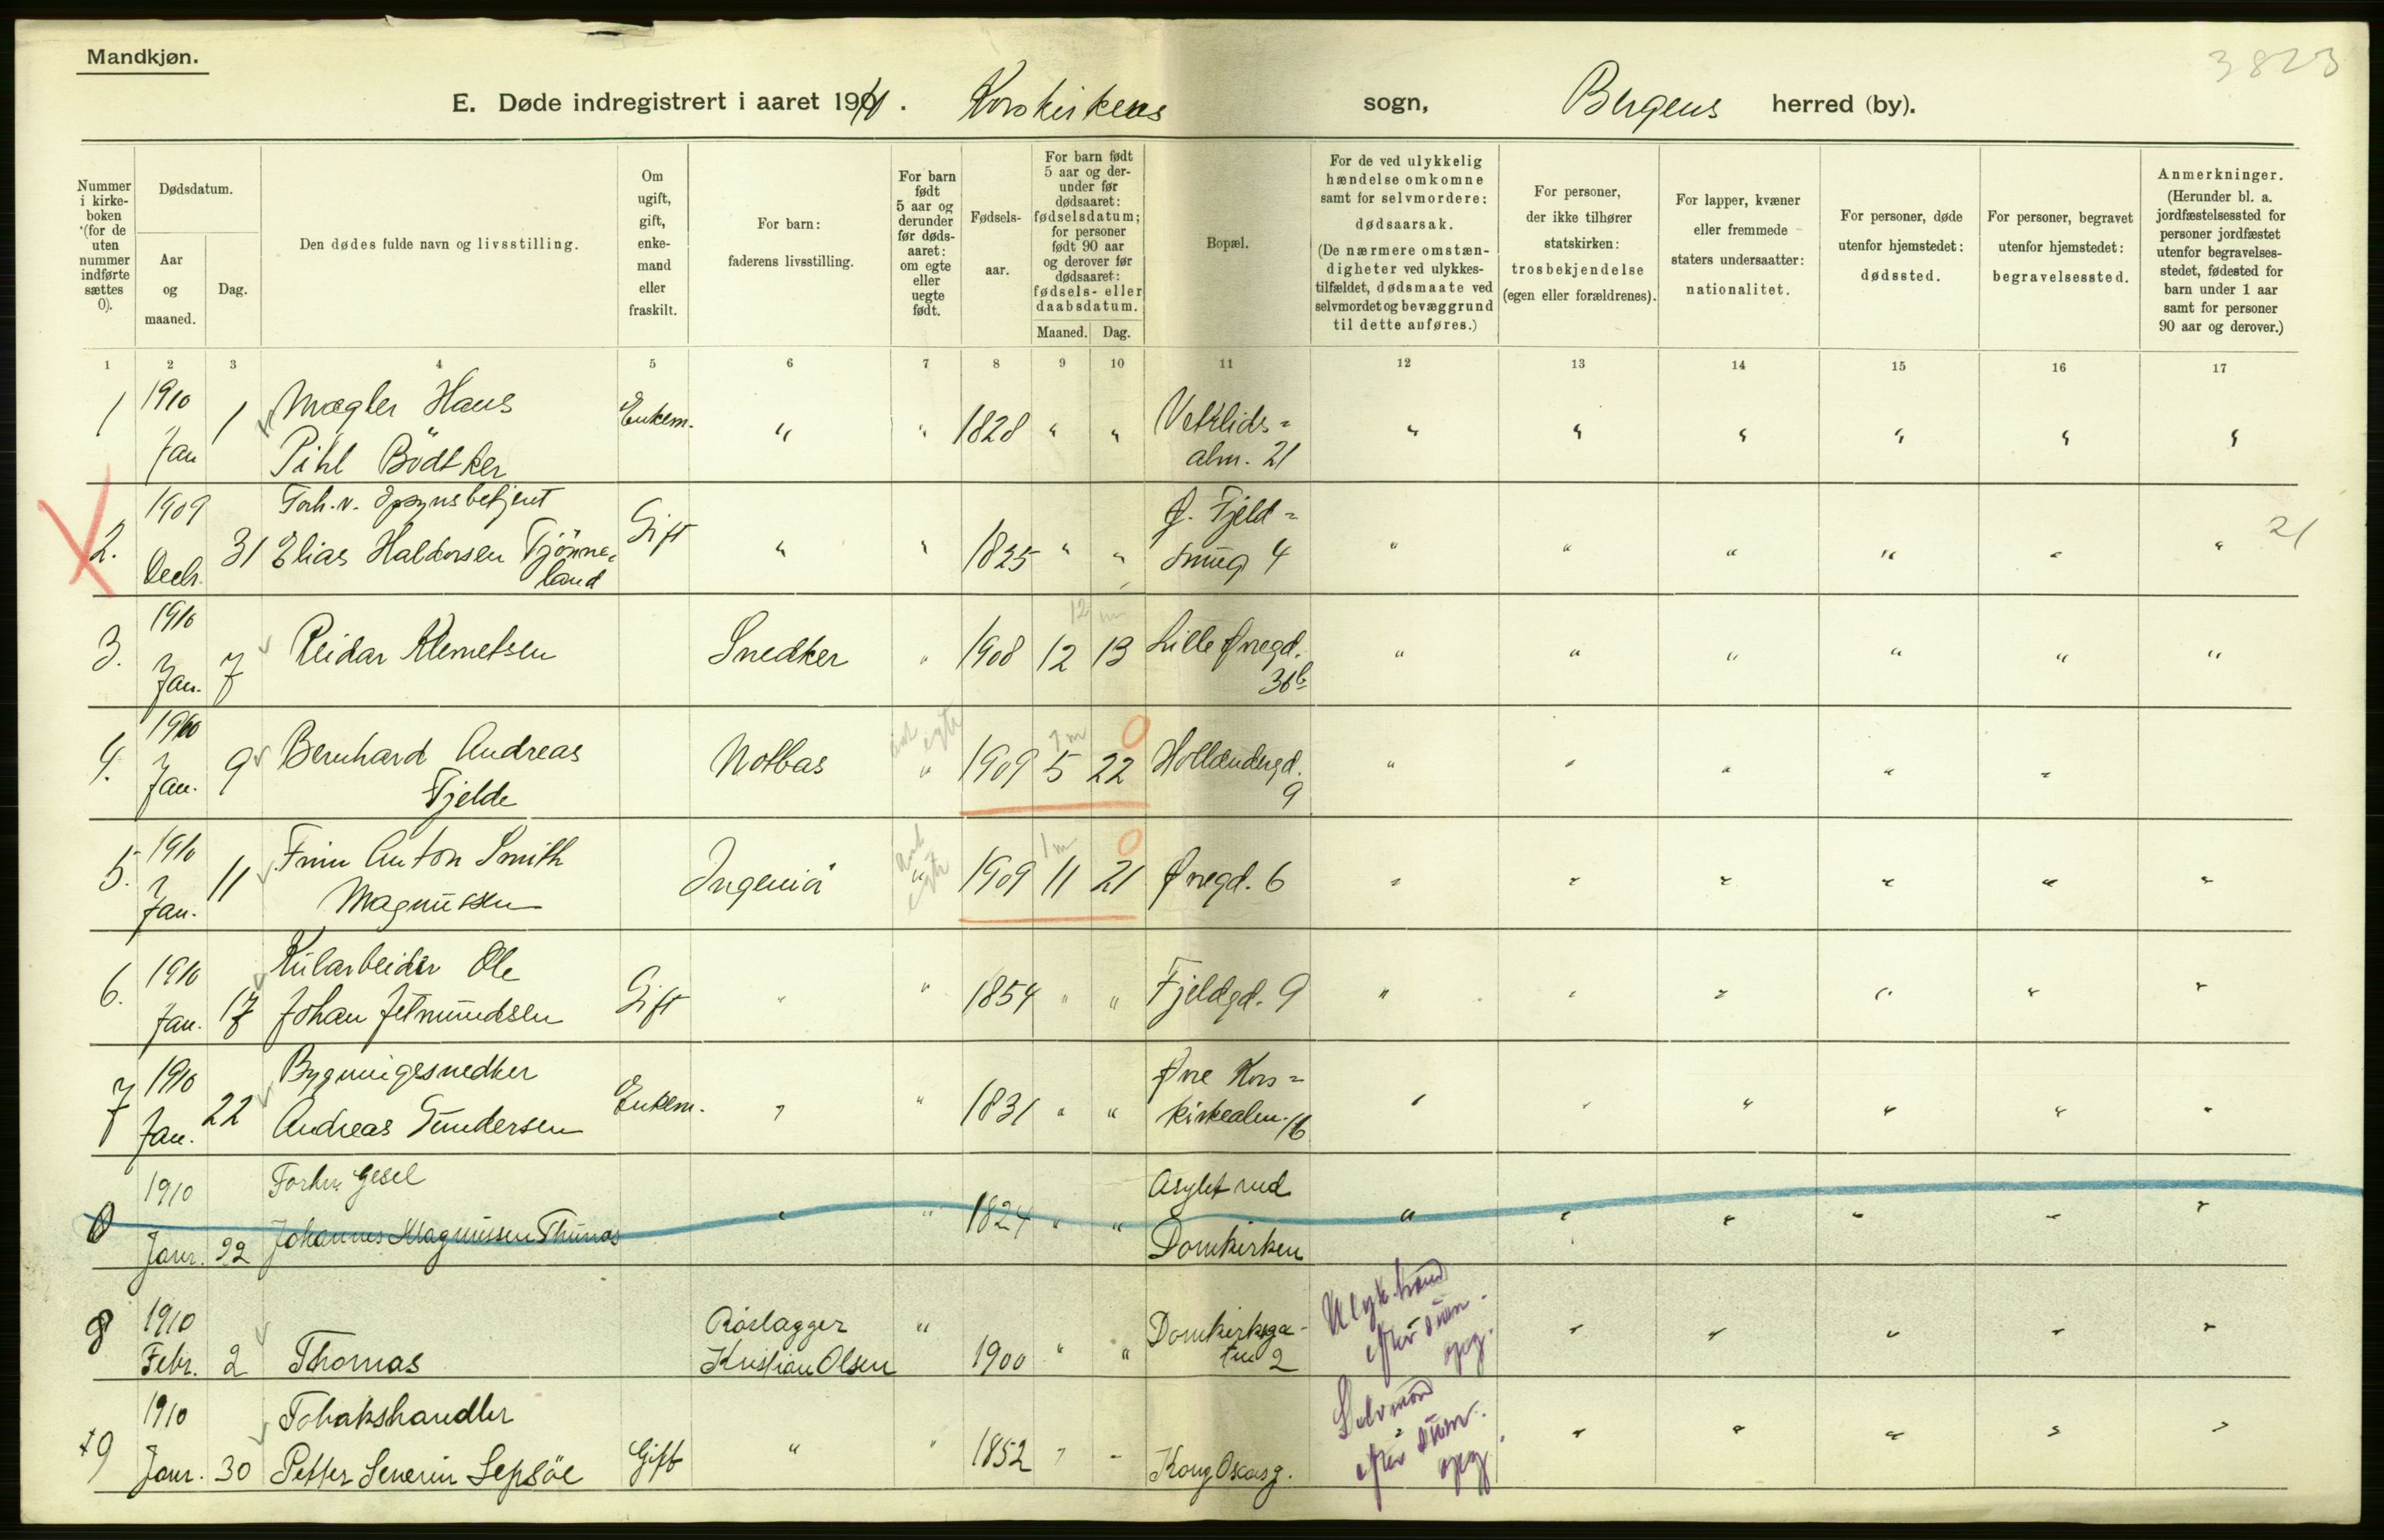 Mandkjøn.
3823
E. Døde indregistrert i aaret 1910. Korskirkens sogn, Bergens herred (by).
Nummer i kirke-boken (for de uten nummer indførte sættes 0).
Dødsdatum.
Aar og maaned.
Dag.
Den dødes fulde navn og livsstilling.
Om ugift, gift, enke-mand eller fraskilt.
For barn: faderens livsstilling.
For barn født 5 aar og derunder før døds-aaret: om egte eller uegte født.
Fødsels-aar.
For barn født 5 aar og der-under før dødsaaret: fødselsdatum; for personer født 90 aar og derover før dødsaaret: fødsels- eller daabsdatum.
Maaned. Dag.
Bopæl.
For de ved ulykkelig hændelse omkomne samt for selvmordere: dødsaarsak. (De nærmere omstæn-digheter ved ulykkes-tilfældet, dødsmaate ved selvmordet og bevæggrund til dette anføres.)
For personer, der ikke tilhører statskirken: trosbekjendelse (egen eller forældrenes).
For lapper, kvæner eller fremmede staters undersaatter: nationalitet.
For personer, døde utenfor hjemstedet: dødssted.
For personer, begravet utenfor hjemstedet: begravelsessted.
Anmerkninger. (Herunder bl. a. jordfæstelsessted for personer jordfæstet utenfor begravelses-stedet, fødested for barn under 1 aar samt for personer 90 aar og derover.)
1 2 3 4 5 6 7 8 9 10 11 12 13 14 15 16 17
1 1910 Jan 1 Mægler Hans Pihl Bödtker Enkem. " " 1828 " " Vetrlids= alm. 21 " " " " " "
2. 1909 Decb. 31 Forh.v. Opsynsbetjent Elias Haldorsen Tjönne=land Gift " " 1825 " " Ø. Fjeld=smug 4 " " " " " " 21
3. 1910 Jan. 7 Reidar Klemetsen Snedker " 1908 12 13 Lille Øvregd. 36b " " " " " "
4. 1910 Jan. 9 Bernhard Andreas Fjelde Notbas " egte 1909 5 22 7 m 0 Hollendergd. 9 " " " " "
5. 1910 Jan. 11 Finn Anton Smith Magnussen Ingeniör " egte 1909 11 21 1 m 0 Øvregd. 6 " " " " " "
6. 1910 Jan. 17 Kularbeider Ole Johan Jetmundsen Gift " " 1854 " " Fjeldgd. 9 " " " " " "
7 1910 Jan. 22 Bygningssnedker Andreas Gundersen Enkem. " " 1831 " " Øvre Kors=kirkealm. 16 " " " " " "
0 1910 Janr. 22 Forhv. Gesel Johannes Magnussen Thunæs " " 1824 " " Asylet ved Domkirken " " " " " "
8 1910 Febr. 2 Thomas Rörlægger Kristian Olsen " 1900 " " Domkirkega-ten 2 Ulyk. hænd efter dom. opg. " " " " "
9 1910 Janr. 30 Tobakshandler Petter Severin Sepsöe Gift " " 1852 " " Kong Oscarsg. Selvmord efter dom. opg. " " " " "